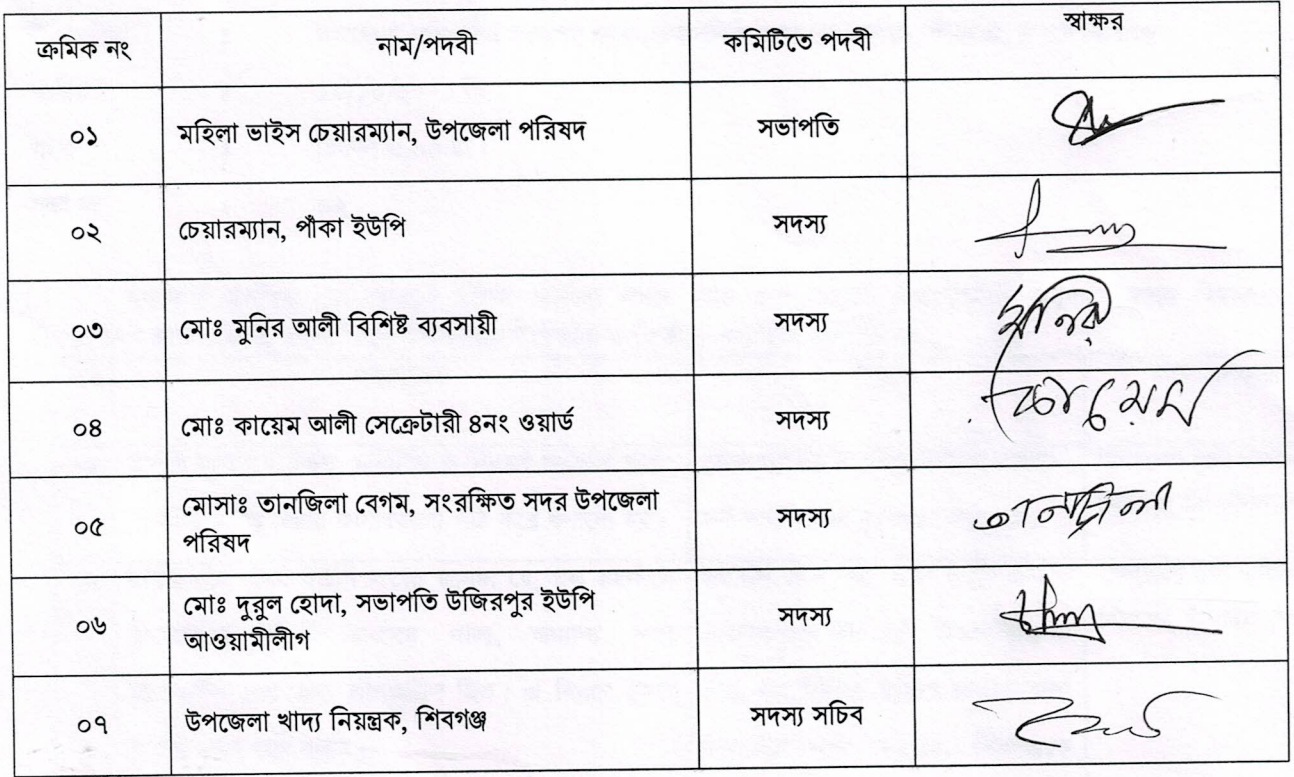 ক্রমিক নং নাম/পদবী কমিটিতে পদবী স্বাক্ষর
০১ মহিলা ভাইস চেয়ারম্যান, উপজেলা পরিষদ সভাপতি
০২ চেয়ারম্যান, পাঁকা ইউপি সদস্য
০৩ মোঃ মুনির আলী বিশিষ্ট ব্যবসায়ী সদস্য মুনির
০৪ মোঃ কায়েম আলী সেক্রেটারী ৪নং ওয়ার্ড সদস্য কায়েম
০৫ মোসাঃ তানজিলা বেগম, সংরক্ষিত সদর উপজেলা সদস্য তানজিলা
পরিষদ
০৬ মোঃ দুরুল হোদা, সভাপতি উজিরপুর ইউপি সদস্য
আওয়ামীলীগ
০৭ উপজেলা খাদ্য নিয়ন্ত্রক, শিবগঞ্জ সদস্য সচিব